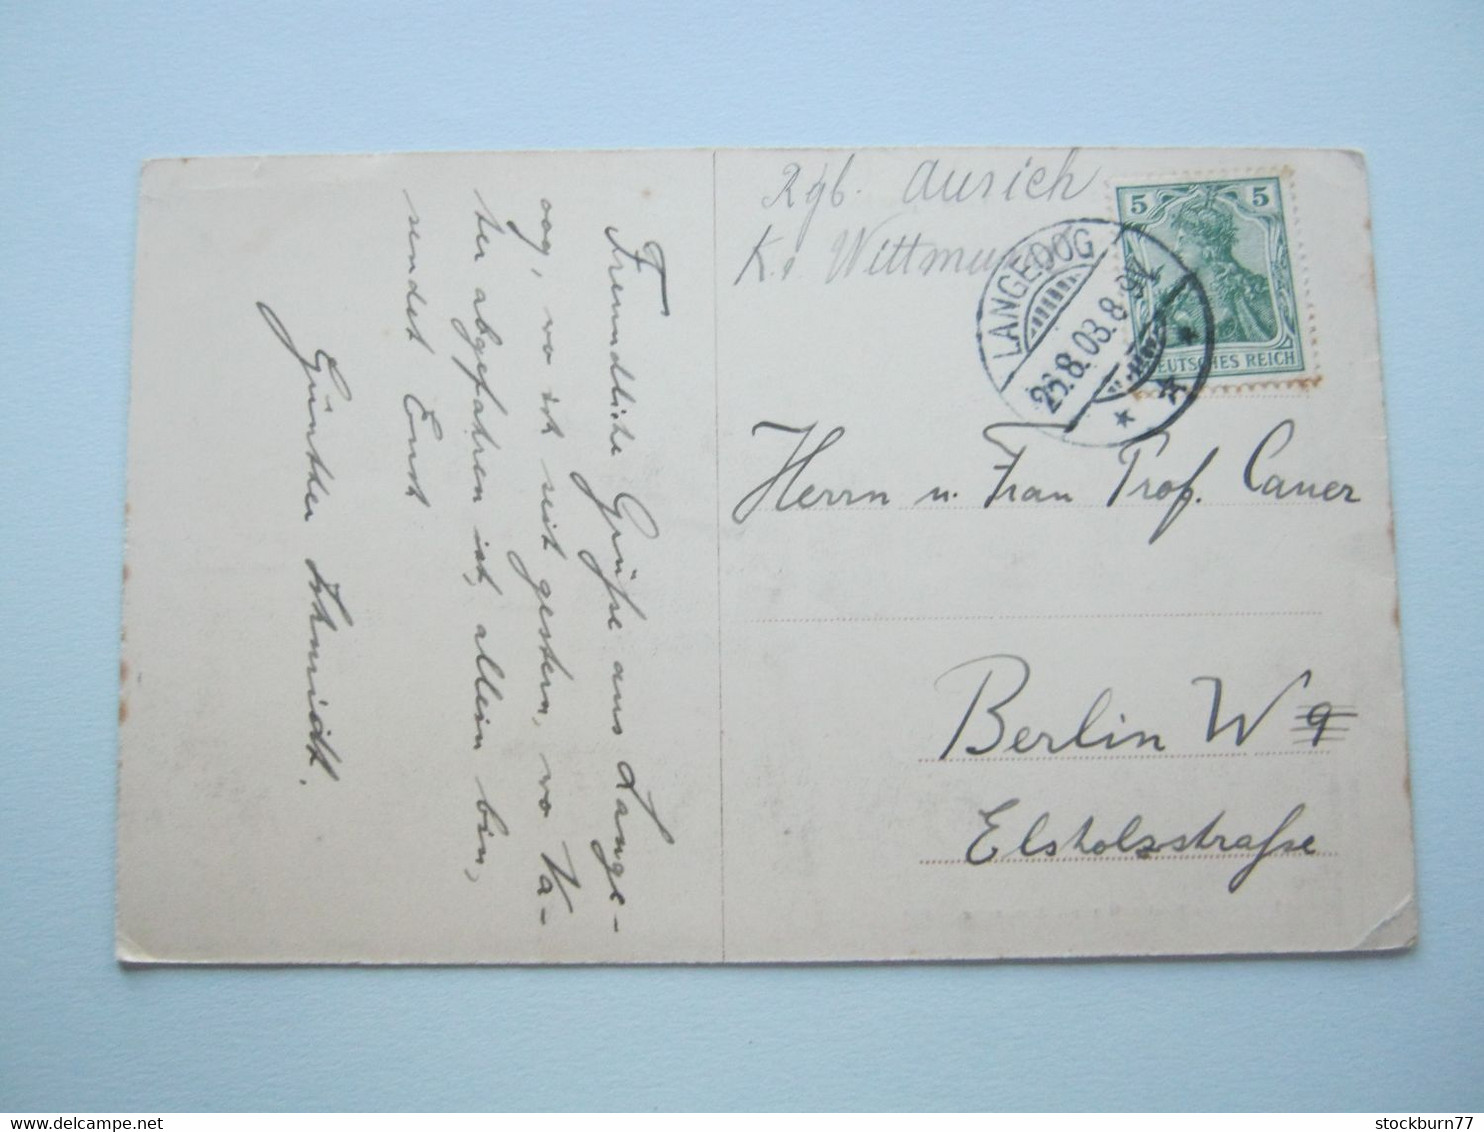 Freundliche Grüße aus Lange-
oog, wo ich seit gestern, wo Va-
ter abgefahren ist, allein bin,
sendet Ernst
Günther Schmidt.
Rgb. Aurich
Kr. Wittmund
5 5
DEUTSCHES REICH
LANGEOOG
26.8.03.8-9V.
Herrn u. Frau Prof. Cauer
Berlin W 9
Elsholzstraße
stockburn77